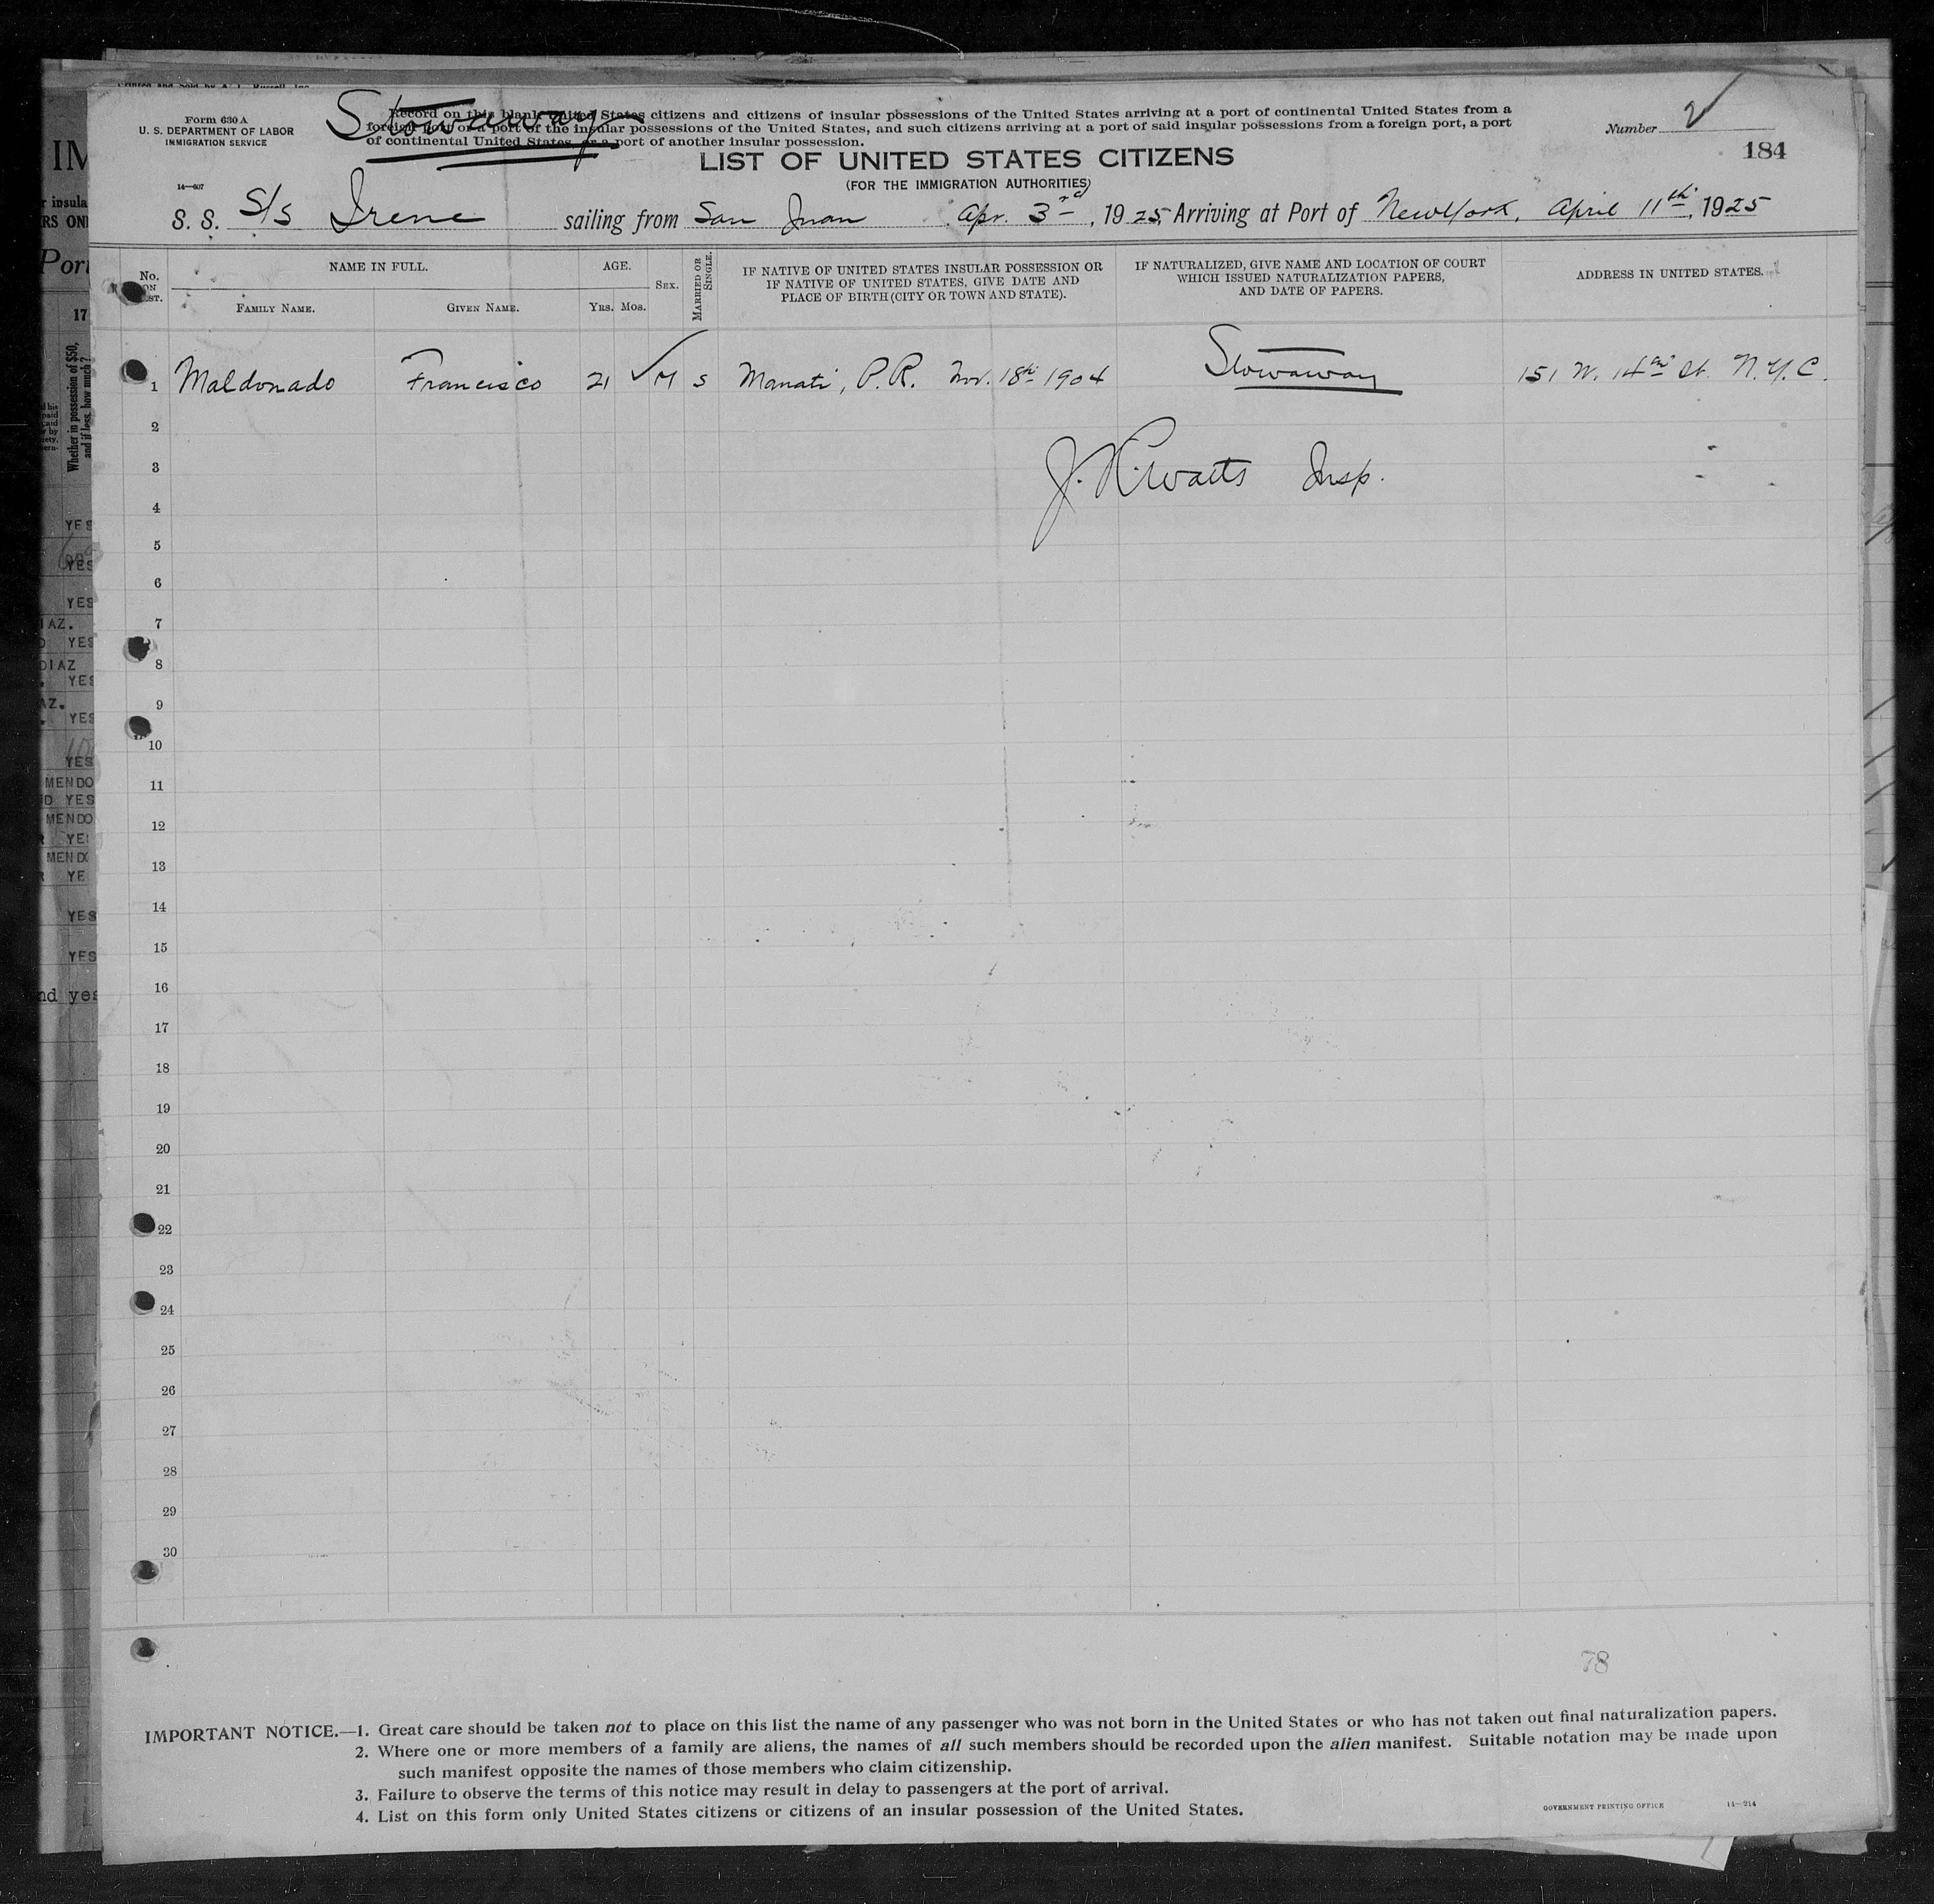 Printed and Sold by A. L. Russell, Inc.
Form 630 A
U. S. DEPARTMENT OF LABOR
IMMIGRATION SERVICE
Stowaway
Record on this blank United States citizens and citizens of insular possessions of the United States arriving at a port of continental United States from a
foreign port or a port of the insular possessions of the United States, and such citizens arriving at a port of said insular possessions from a foreign port, a port
of continental United States, or a port of another insular possession.
Number 2
184
LIST OF UNITED STATES CITIZENS
(FOR THE IMMIGRATION AUTHORITIES)
14—607
S. S. S/S Irene sailing from San Juan Apr. 3rd, 1925, Arriving at Port of New York, April 11th, 1925
No. ON LIST.
NAME IN FULL.
FAMILY NAME.
GIVEN NAME.
AGE.
YRS. MOS.
SEX.
MARRIED OR SINGLE.
IF NATIVE OF UNITED STATES INSULAR POSSESSION OR
IF NATIVE OF UNITED STATES, GIVE DATE AND
PLACE OF BIRTH (CITY OR TOWN AND STATE).
IF NATURALIZED, GIVE NAME AND LOCATION OF COURT
WHICH ISSUED NATURALIZATION PAPERS,
AND DATE OF PAPERS.
ADDRESS IN UNITED STATES.
1 Maldonado Francisco 21 M S Manati, P.R. Nov. 18th 1904 Stowaway 151 W. 14th St. N.Y.C.
2
3 J. R. Watts Insp.
4
5
6
7
8
9
10
11
12
13
14
15
16
17
18
19
20
21
22
23
24
25
26
27
28
29
30
78
IMPORTANT NOTICE.—1. Great care should be taken not to place on this list the name of any passenger who was not born in the United States or who has not taken out final naturalization papers.
2. Where one or more members of a family are aliens, the names of all such members should be recorded upon the alien manifest. Suitable notation may be made upon
such manifest opposite the names of those members who claim citizenship.
3. Failure to observe the terms of this notice may result in delay to passengers at the port of arrival.
4. List on this form only United States citizens or citizens of an insular possession of the United States.
GOVERNMENT PRINTING OFFICE
14—214